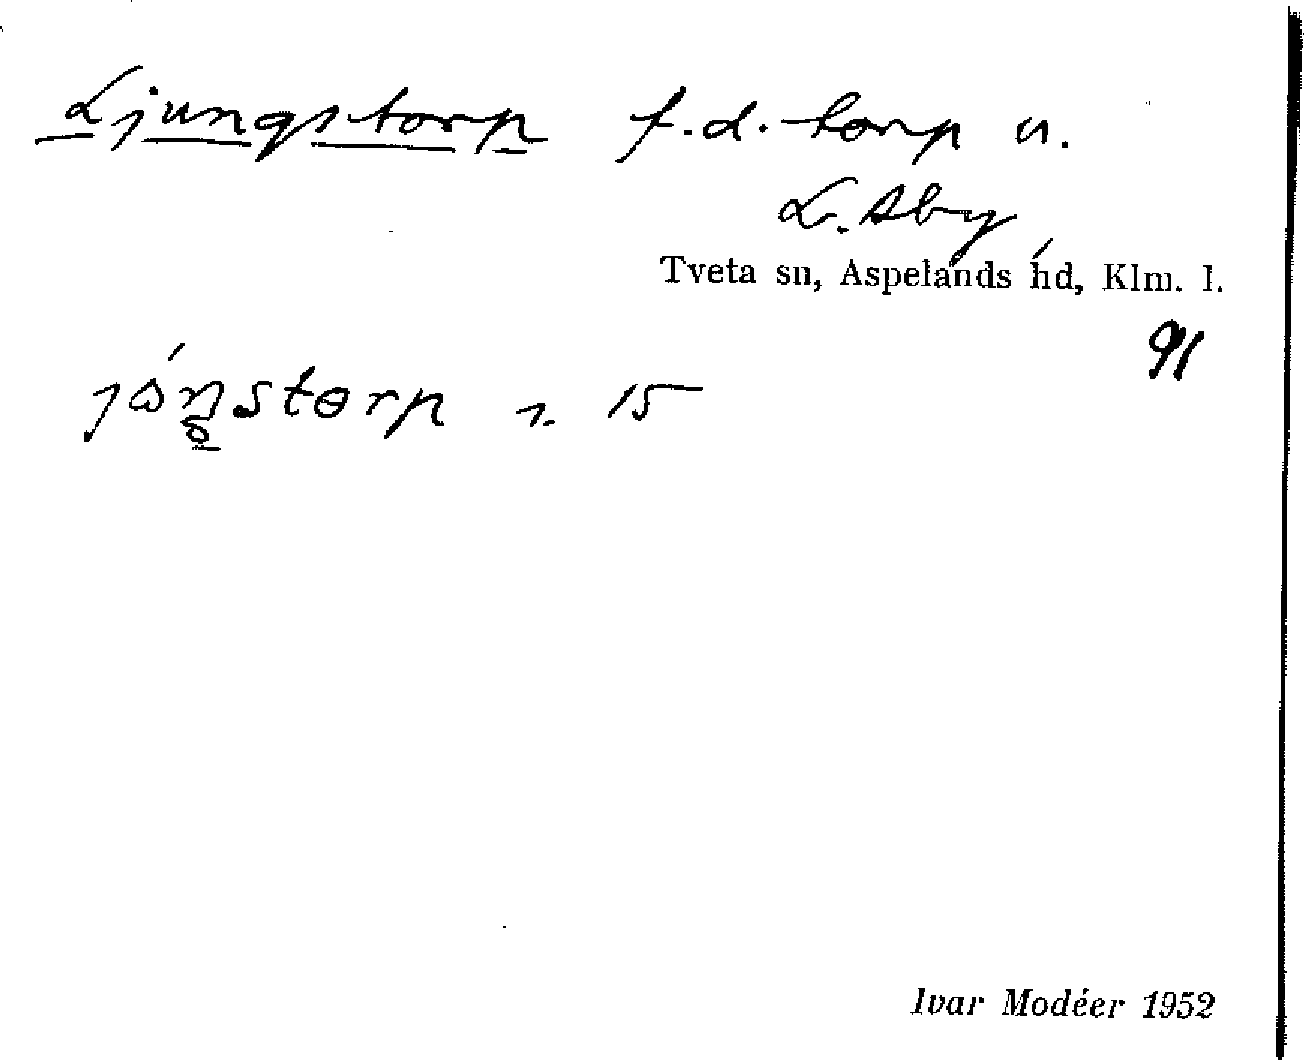 Ljungstorp f.d. torp u.
L. Åby
Tveta sn, Aspelands hd, Klm. l.
91
15
Ivar Modéer 1952